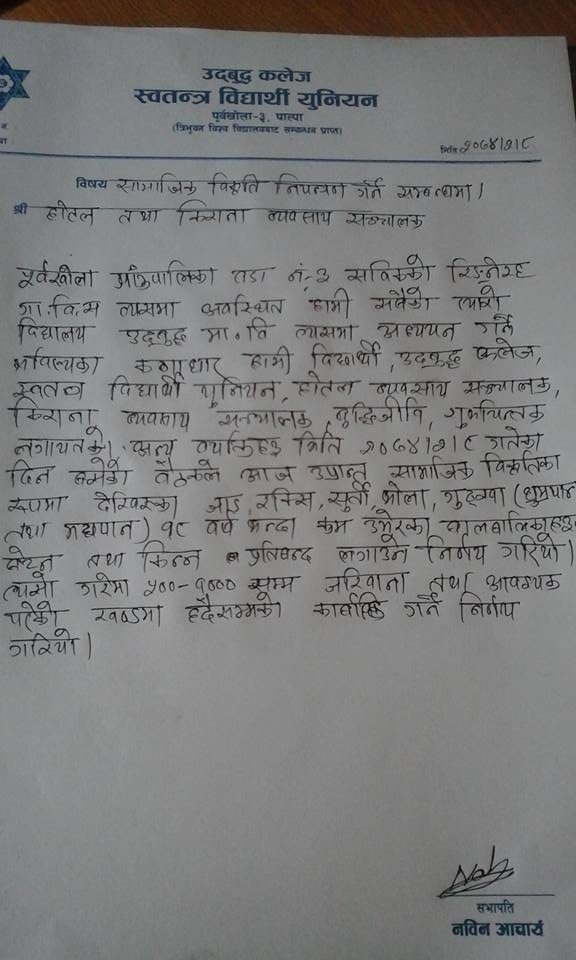 उद्‌बुद्ध कलेज
स्वतन्त्र विद्यार्थी युनियन
पूर्वखोला-३, पाल्पा
(त्रिभुवन विश्व विद्यालयबाट सम्बन्धन प्राप्त)
मिति २०७४।२।९
विषय सामाजिक विकृति नियन्त्रण गर्ने सम्बन्धमा।
श्री होटल तथा किराना व्यवसाय सञ्चालक
पूर्वखोला गाउँपालिका वडा नं-३ साविकको रिङनेरह
गा.वि.स ल्यासमा अवस्थित हामी सबैको प्यारो
विद्यालय उद्‌बुद्ध मा.वि ल्यासमा अध्ययन गर्ने
भविष्यका कर्णधार हामी विद्यार्थी, उद्‌बुद्ध कलेज,
स्वतन्त्र विद्यार्थी युनियन, होटल व्यवसाय सञ्चालक,
किराना व्यवसाय सञ्चालक, बुद्धिजीवि, शुभचिन्तक
लगायतको अन्य व्यक्तिहरु मिति २०७४।२।९ गतेका
दिन बसेको बैठकले आज उप्रान्त सामाजिक विकृतिका
रुपमा देखिएका जाड, रक्सि, सुर्ती, गुट्खा (धुम्रपान
तथा मद्यपान) १८ वर्ष भन्दा कम उमेरका बालबालिकाहरु
बेच्न तथा किन्न प्रतिबन्द लगाउने निर्णय गरियो।
त्यसो गरेमा ५००-१००० सम्म जरिवाना तथा आवश्यक
परेको खण्डमा हदैसम्मको कार्बाहि गर्ने निर्णय
गरियो।
सभापति
नविन आचार्य